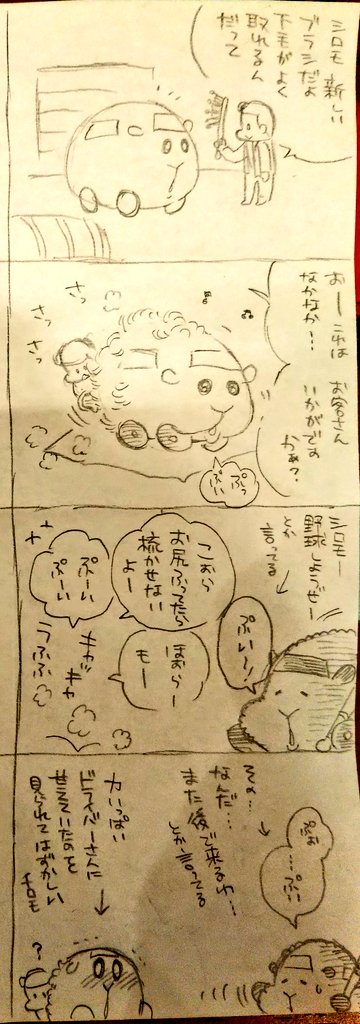 シロモ 新しい
ブラシだよ
下毛がよく
取れるん
だって
おー これは
なかなか…!
お客さん
いかがです
かぁ?
さっ
さっ
さっ
ぷっ
ぷい
シロモー
野球しようぜー
とか
言ってる
ぷい〜!
こぉら
お尻ふってたら
梳かせない
よー
ぷーい
ぷーい
ほぉらー
もー
キャッ
キャ
うふふ
ぷぉ
…ぷい
その…
なんだ…
また後で来るわ…
とか言ってる
力いっぱい
ドライバーさんに
甘えていたのを
見られてはずかしい
シロモ
?